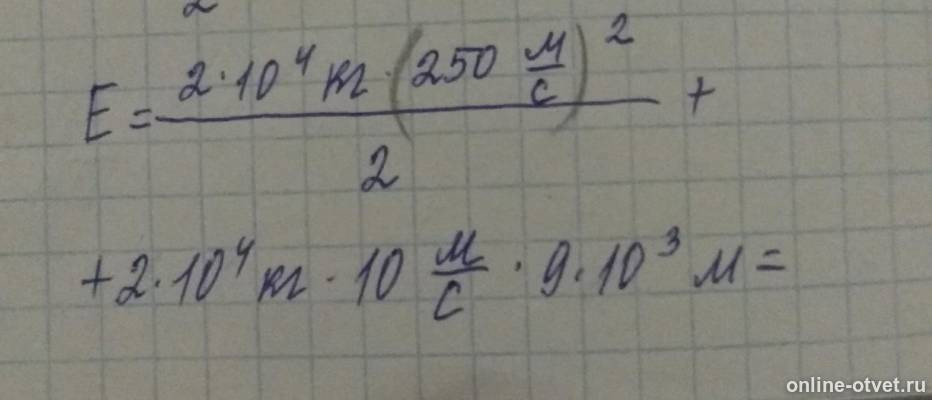 2
E = \frac{2 \cdot 10^4 кг \cdot (250 \frac{м}{с})^2}{2} +
+ 2 \cdot 10^4 кг \cdot 10 \frac{м}{с} \cdot 9 \cdot 10^3 м =
online-otvet.ru